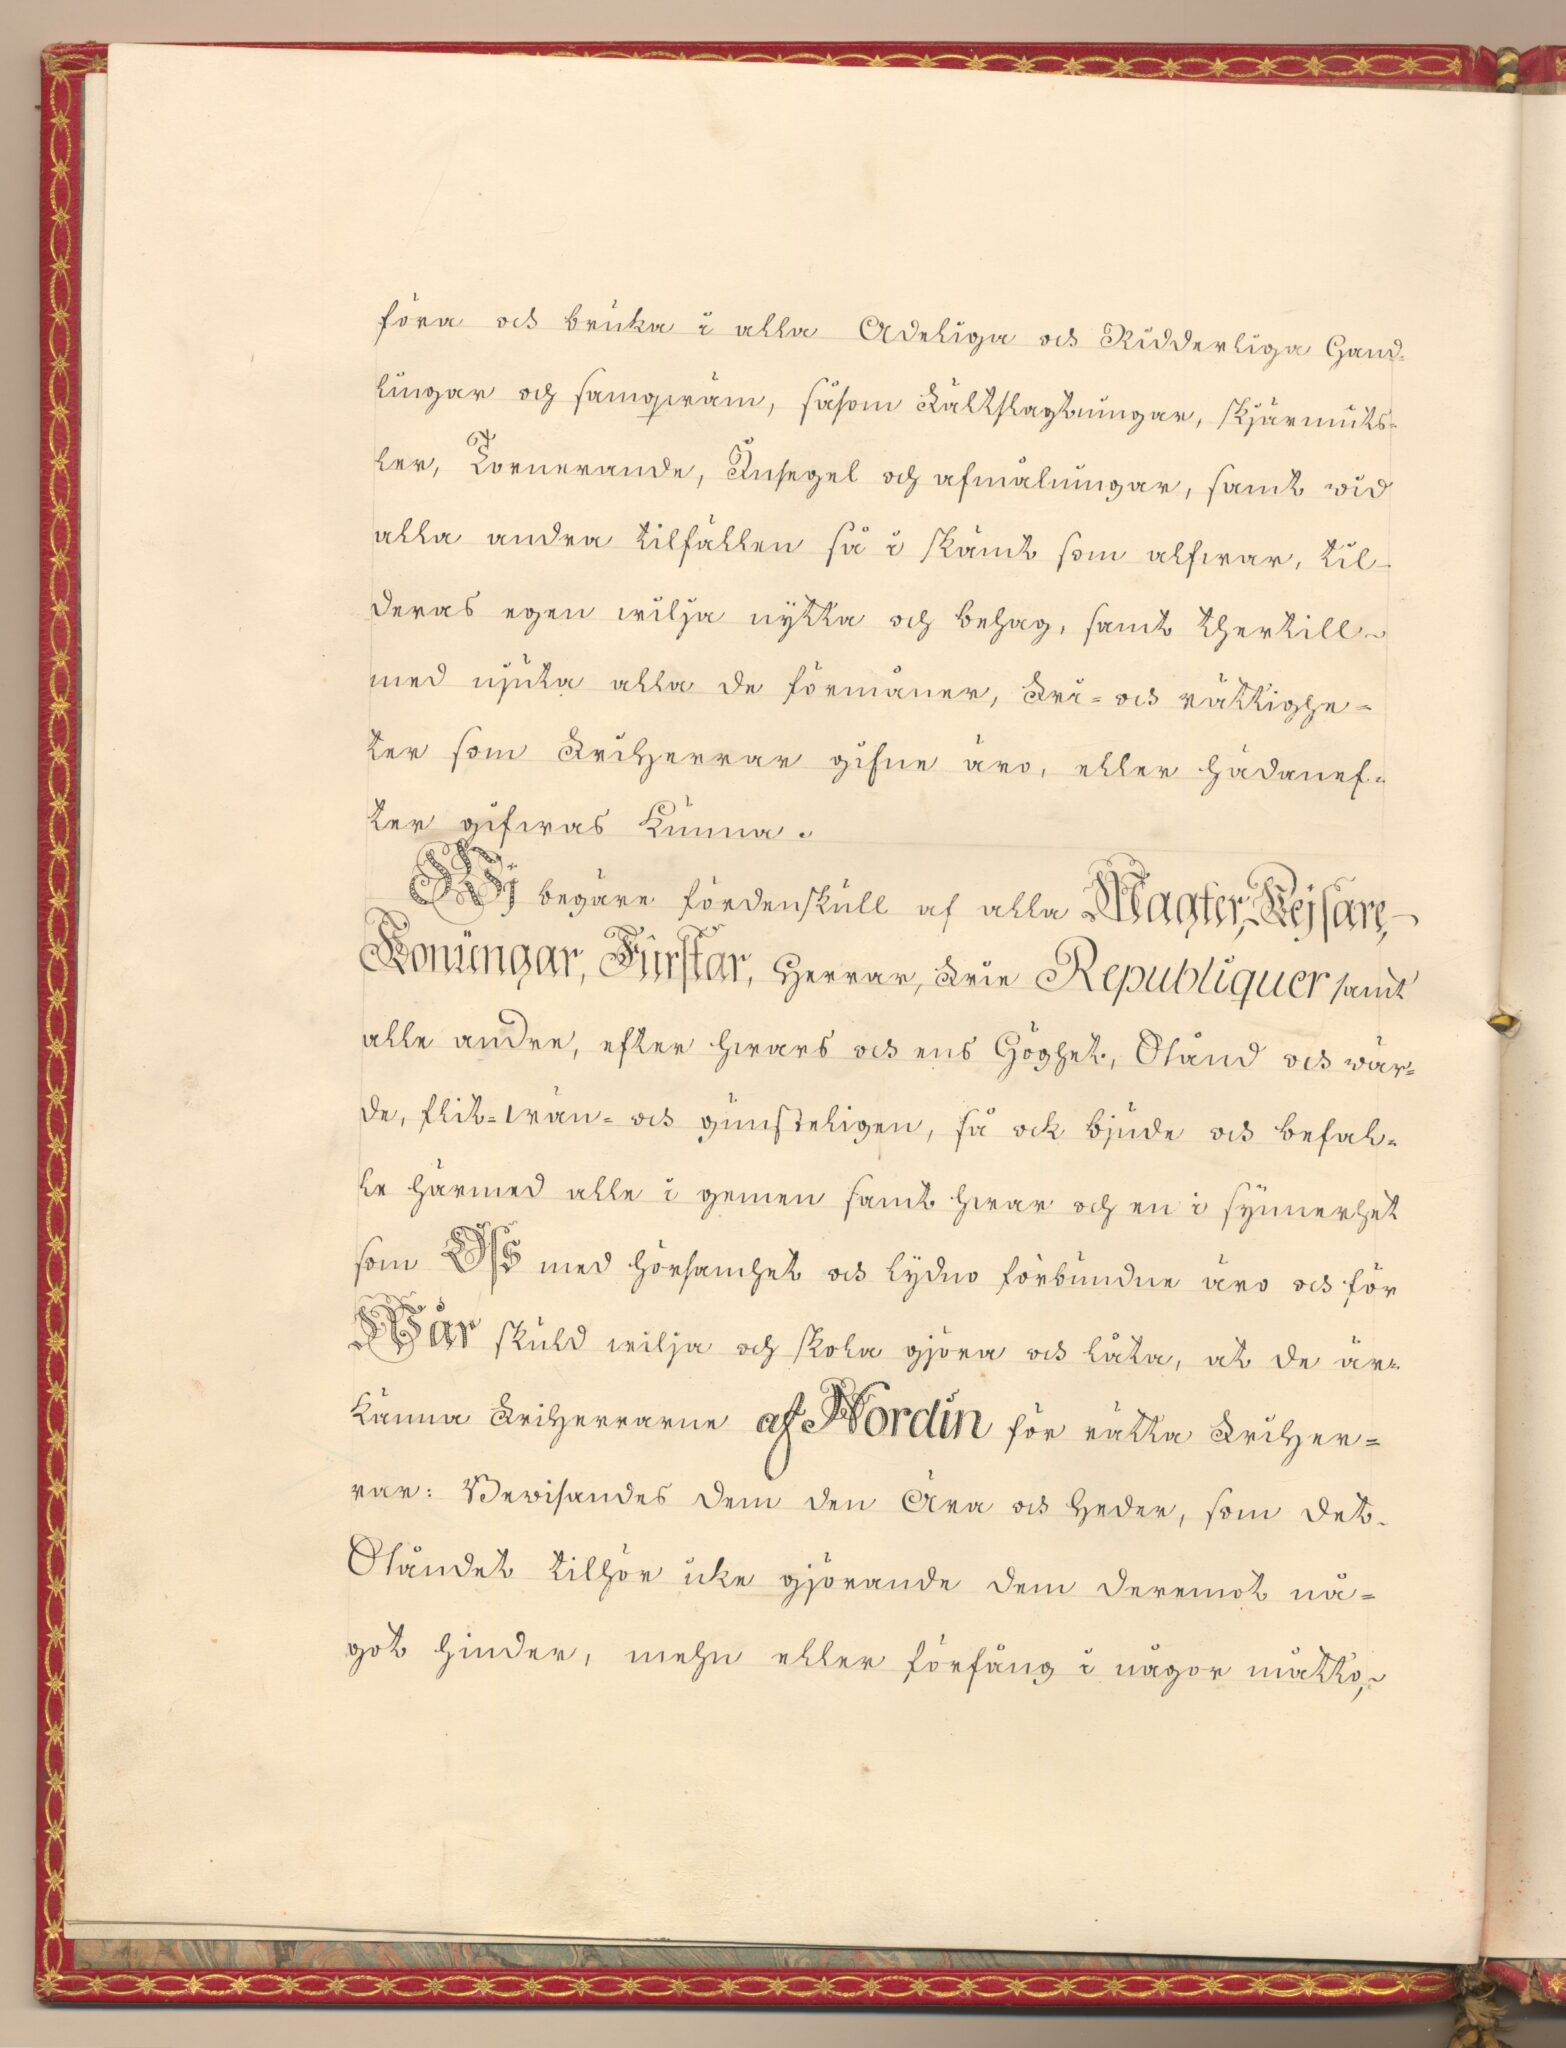 föra och bruka i alla Adeliga och Ridderliga Hand-
lingar och samqwäm, såsom Fältslagtningar, skjärmüts-
ler, Tornerande, Insegel och afmålningar, samt wid
alla andra tilfällen så i skämt som alfwar, til
deras egen wilja nytta och behag, samt thertill
med njuta alla de förmåner, Fri- och rättighe-
ter som Friherrar gifne äro, eller hädanef-
ter gifwas kunna.
Wj begäre fördenskull af alla Magter, Kejsare,
Konungar, Fürstar, Herrar, Frie Republiquer samt
alle andre, efter hwars och ens Höghet, Stånd och wär-
de, flit-wän- och gunsteligen, så ock bjude och befal-
le härmed alle i gemen samt hwar och en i synnerhet
som Oss med hörsamhet och lydno förbundne äro och för
Wår skuld wilja och skola gjöra och låta, at de är-
känna Friherrarne af Nordin för rätta Friher-
rar: Bewisandes dem den Ära och heder, som det
Ståndet tilhör icke gjörande dem deremot nå-
got hinder, mehn eller förfång i någor måtto,